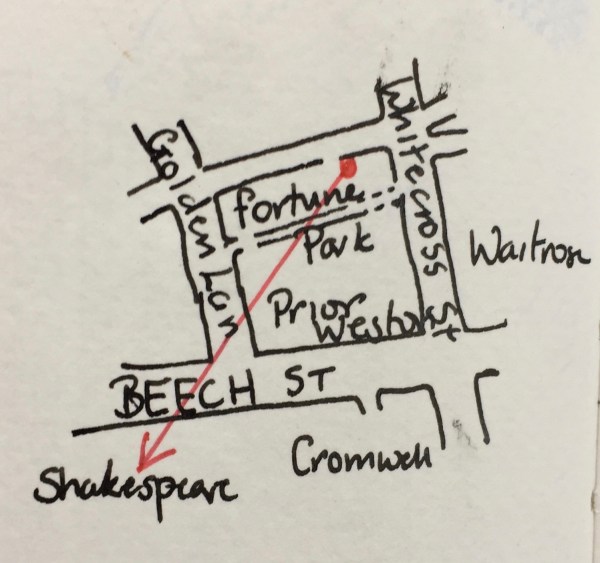 Golden Lan
Whitecross St
fortune
Park
Waitrose
Prior
Weston
BEECH ST
Cromwell
Shakespeare